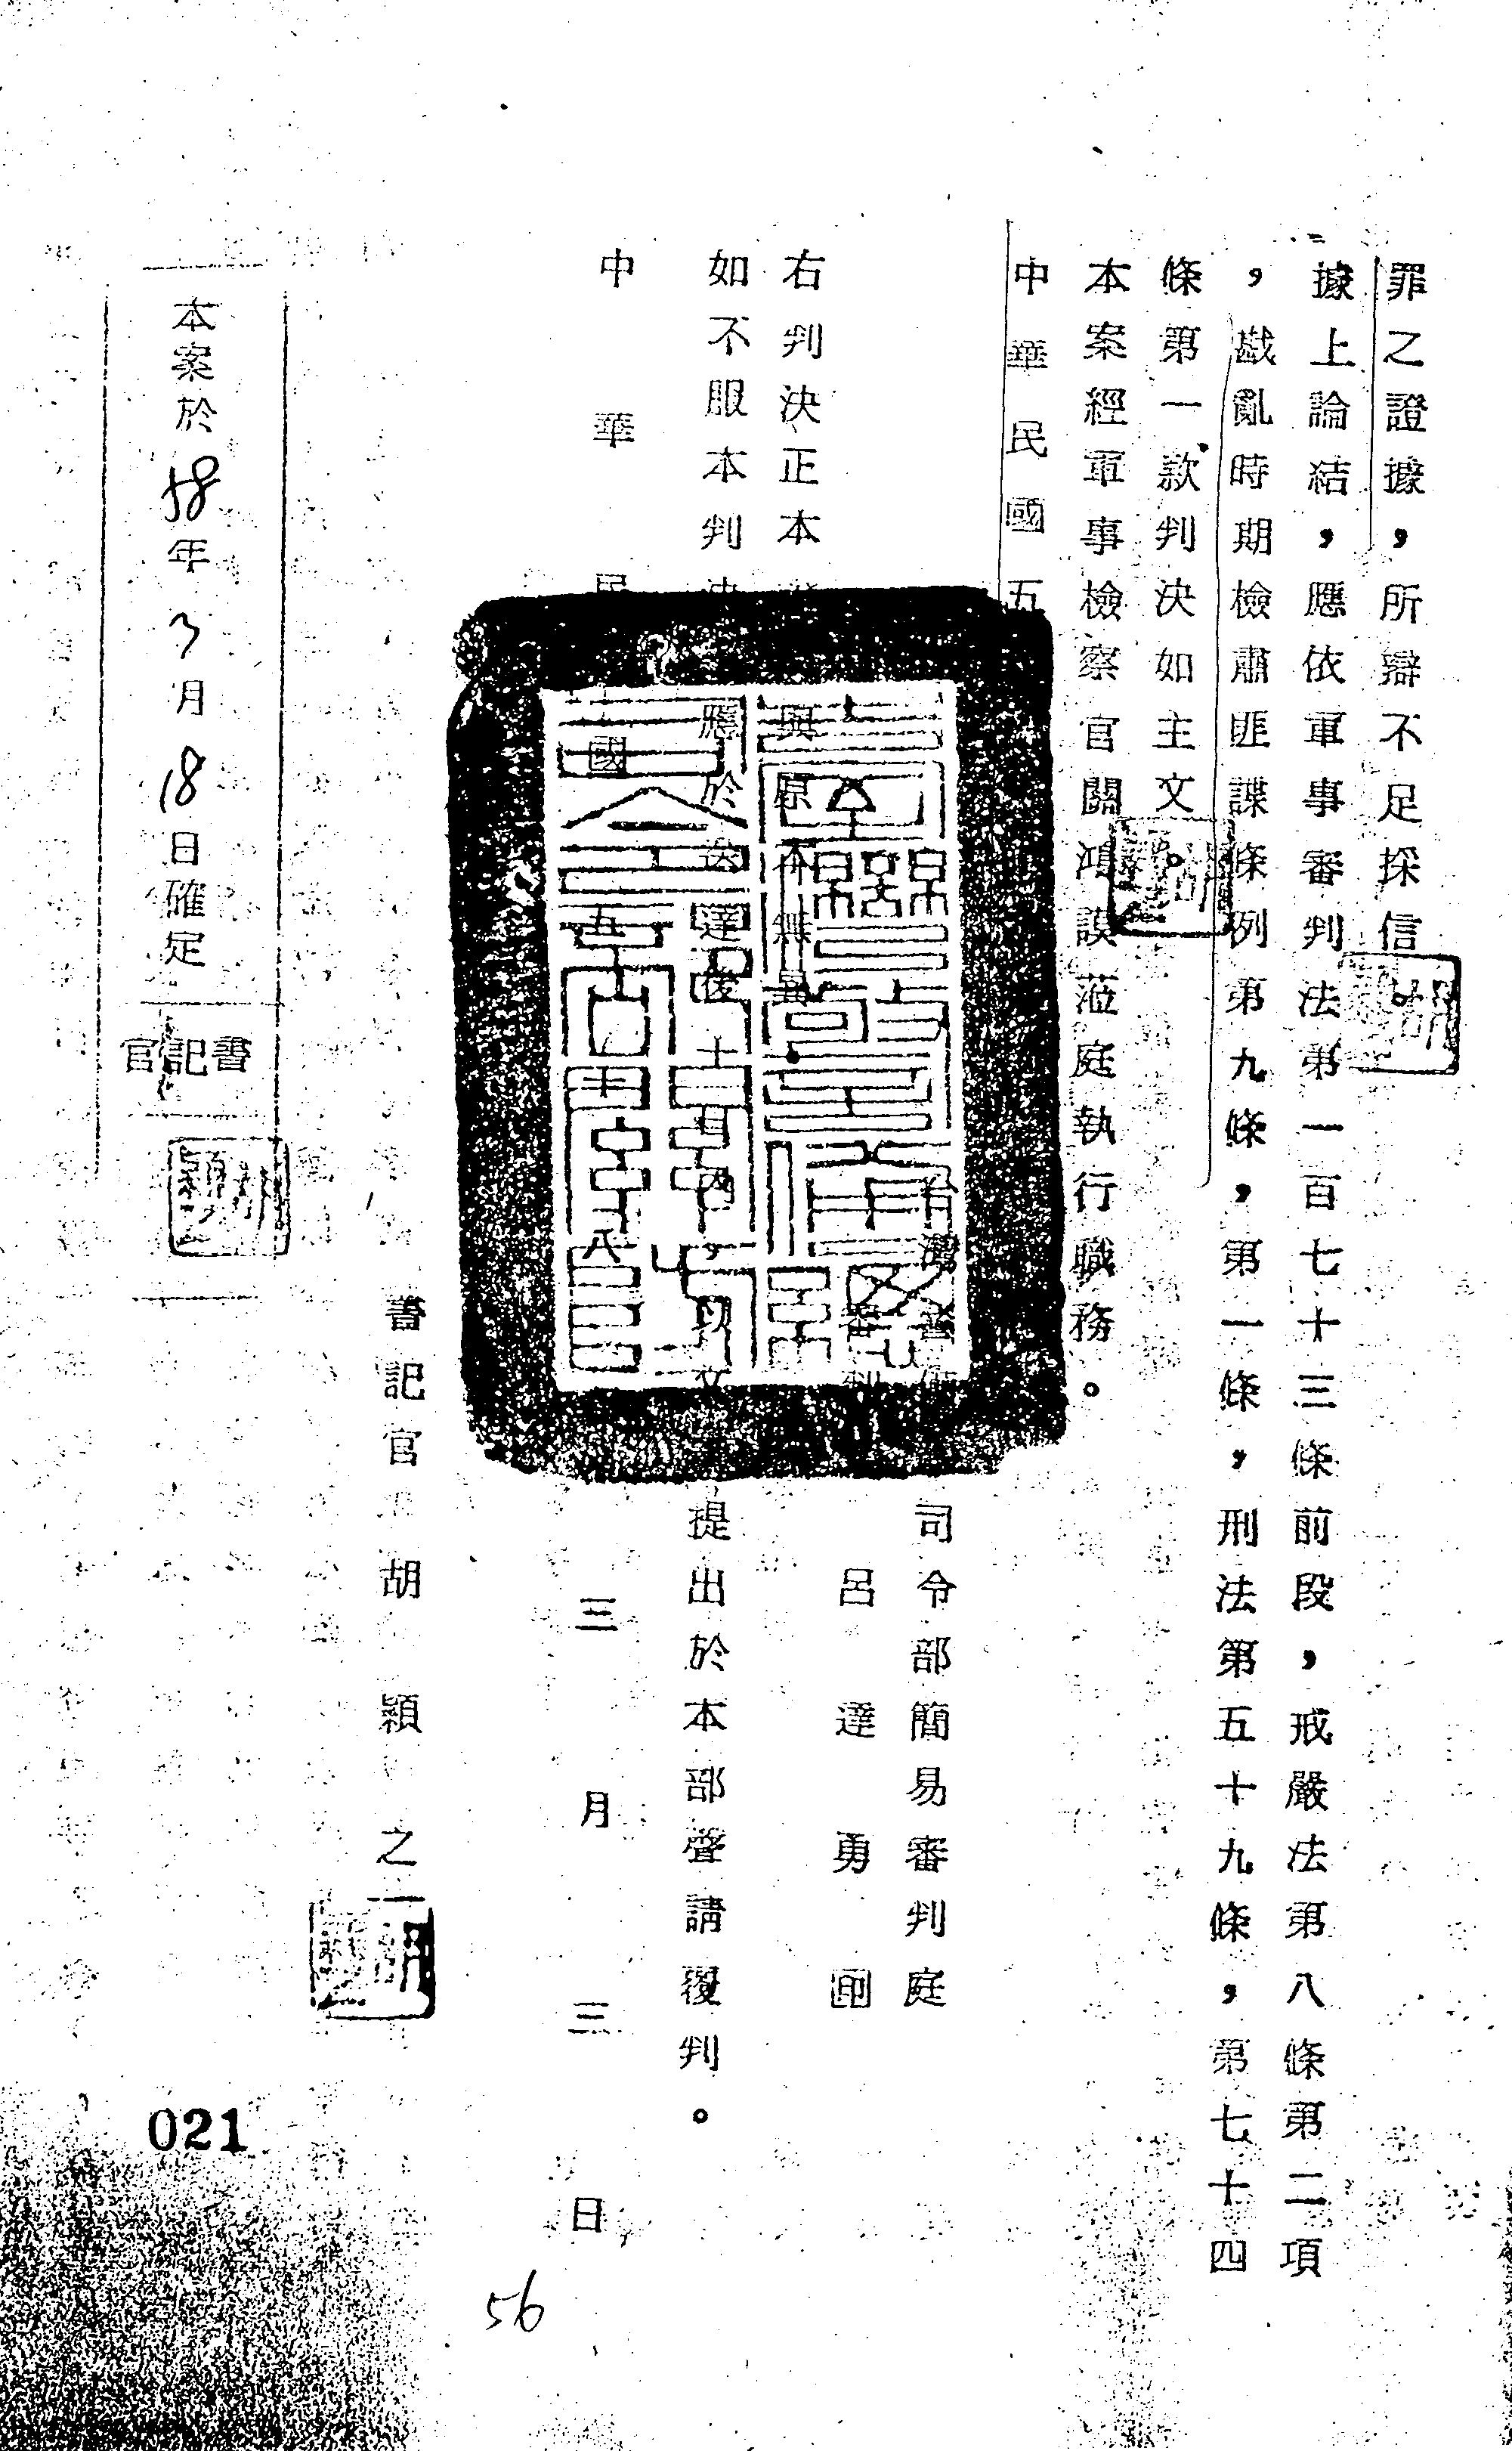 罪之證據，所辯不足採信。
據上論結，應依軍事審判法第一百七十三條前段，戒嚴法第八條第二項
，戡亂時期檢肅匪諜條例第九條，第一條，刑法第五十九條，第七十四
條第一款判決如主文。
本案經軍事檢察官關鴻謨蒞庭執行職務。
中華民國五
台灣 司令部簡易審判庭
審判 呂達勇 印
右判決正本 與原本無異
如不服本判決 應於送達後十日內，以文 提出於本部聲請覆判。
中華民國五 八 三月三日
書記官 胡穎之
本案於58年3月18日確定
書記官
021
56